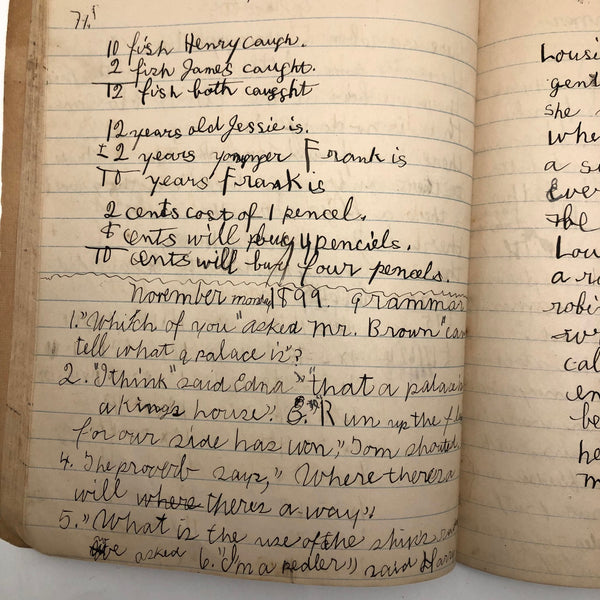 7½
10 fish Henry caugh.
2 fish James caught.
12 fish both caught
12 years old Jessie is.
2 years younger Frank is
10 years Frank is
2 cents cost of 1 pencel.
cents will buy 4 penciels.
10 cents will buy four pencels.
November monday 1899. grammar
1."Which of you" asked Mr. Brown "can
tell what a palace is"?
2. "I think" said Edna "that a palace is
a kings house". 3. "Run up the
for our side has won," Tom shouted.
4. The proverb says," Where theres a
will where theres a way"
5. "What is the use of the ship's
asked 6. "I'm a pedler" said Harry
Lousi
gent
she
whe
a s
Ever
the
Lou
a ro
robi
cal
en
be
he
m